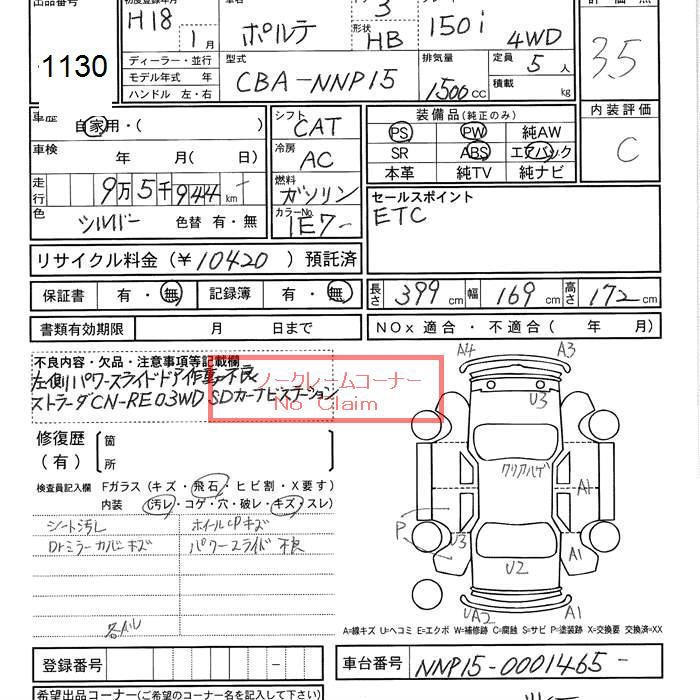 出品番号 初度登録年月 車名 ドア グレード 評価点
1130
H18 1月 ポルテ 3 形状 HB 150i 4WD 3.5
ディーラー・並行
モデル年式 年
ハンドル 左・右
型式 CBA-NNP15 排気量 1500CC 定員 5人 積載 kg
内装評価 C
車歴 自家用・( )
シフト CAT
装備品(純正のみ)
PS PW 純AW
SR ABS エアバック
本革 純TV 純ナビ
車検 年 月( 日)
冷房 AC
走行 9万5千944km
燃料 ガソリン
セールスポイント
ETC
色 シルバー 色替 有・無
カラーNo. 1E7-
リサイクル料金(¥10420)預託済
保証書 有・無 記録簿 有・無
長さ 399cm 幅 169cm 高さ 172cm
書類有効期限 月 日まで
NOx 適合・不適合( 年 月)
不良内容・欠品・注意事項等記載欄
左側パワースライドドア作動不良
ストラーダCN-RE03WD SDカーナビステーション
ノークレームコーナー
No Claim
修復歴 箇
(有) 所
検査員記入欄 Fガラス(キズ・飛石・ヒビ割・X要す)
内装 (汚レ・コゲ・穴・破レ・キズ・スレ)
シート汚レ ホイールCPキズ
Drミラーカバーキズ パワースライド不良
A4 A3
U3
クリアハゲ
A1
P
U3 A1
U2
UA2 A1
A=線キズ U=ヘコミ E=エクボ W=補修跡 C=腐蝕 S=サビ P=塗装跡 X=交換要 交換済=XX
登録番号 -
車台番号 NNP15-0001465-
希望出品コーナー(ご希望のコーナー名を記入して下さい)